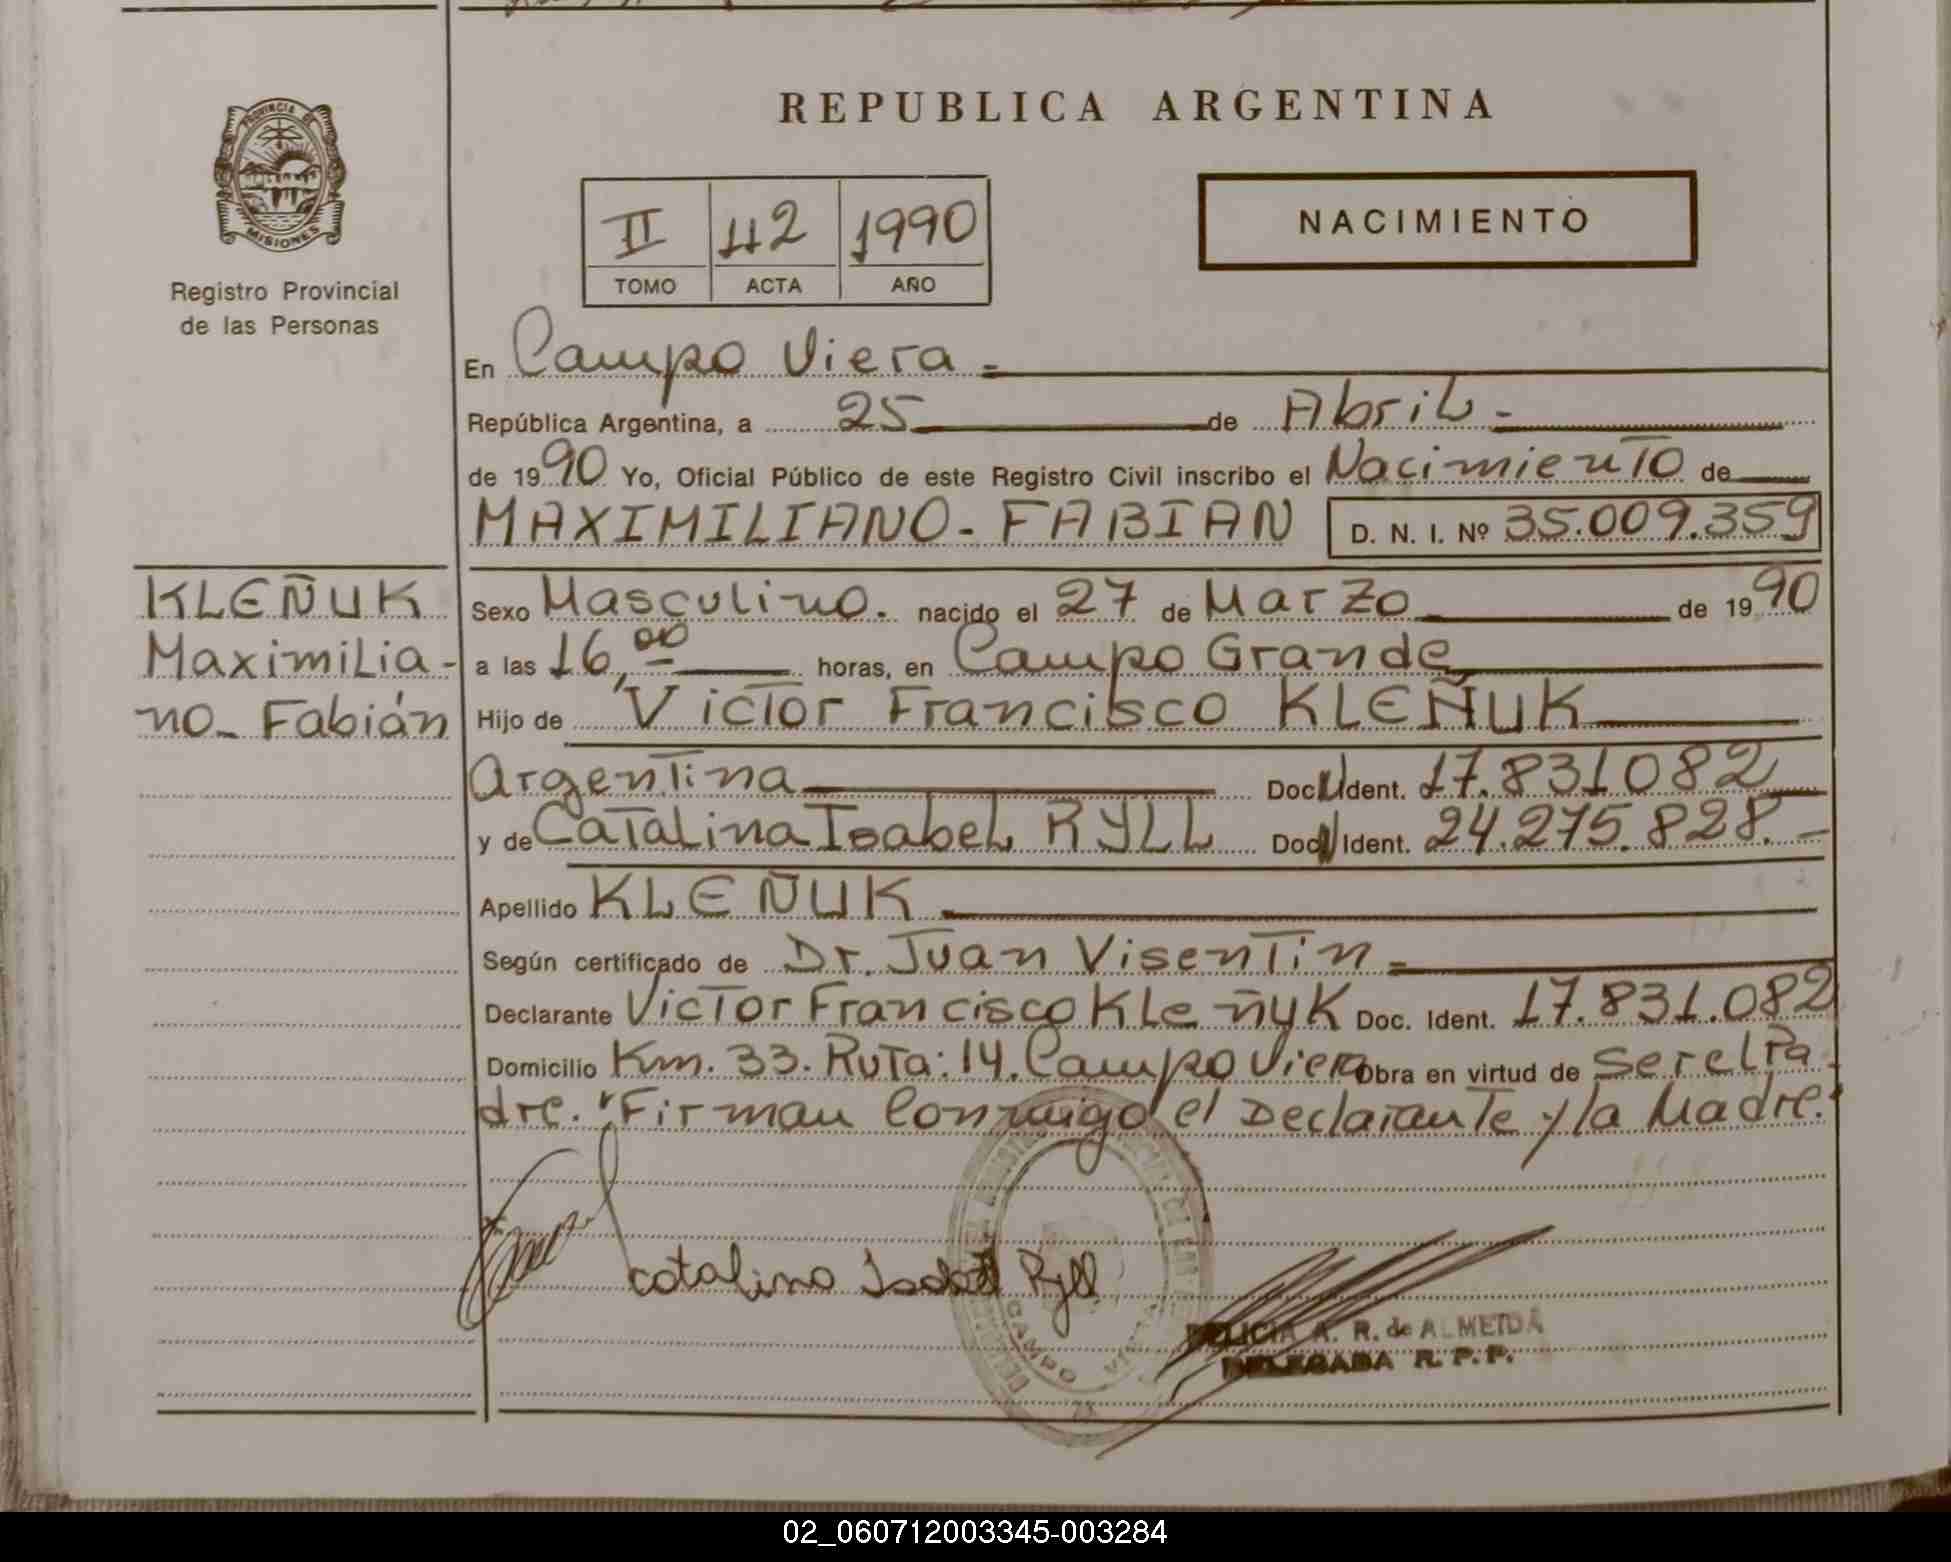 REPUBLICA ARGENTINA
PROVINCIA DE
MISIONES
Registro Provincial
de las Personas
II 42 1990
TOMO ACTA AÑO
NACIMIENTO
En Campo Viera =
República Argentina, a 25 de Abril -
de 1990 Yo, Oficial Público de este Registro Civil inscribo el Nacimiento de
MAXIMILIANO - FABIAN D. N. I. Nº 35.009.359
KLEÑUK
Maximilia-
no - Fabián
Sexo Masculino. nacido el 27 de Marzo de 1990
a las 16,00 horas, en Campo Grande
Hijo de Victor Francisco KLEÑUK
Argentina Doc. Ident. 17.831082
y de Catalina Isabel RYLL Doc. Ident. 24.275.828. -
Apellido KLEÑUK
Según certificado de Dr. Juan Visentin =
Declarante Victor Francisco Kleñuk Doc. Ident. 17.831.082
Domicilio Km. 33. Ruta: 14. Campo Viera Obra en virtud de ser el Pa-
dre. "Firman Conmigo el Declarante y la Madre."
catalina Isabel Ryll
CAMPO VIERA
DELICIA A. R. de ALMEIDA
DELEGADA R. P. P.
02_060712003345-003284